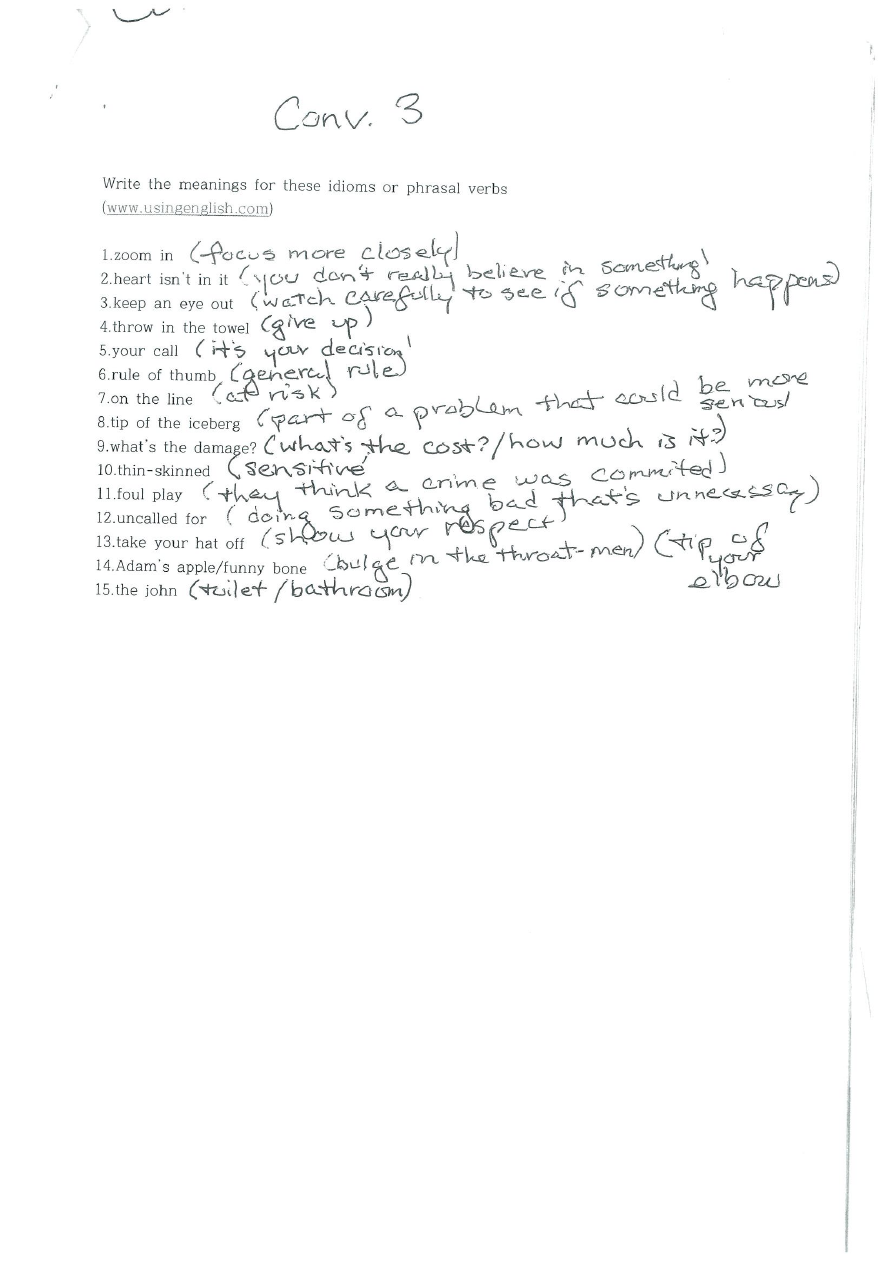 Conv. 3
Write the meanings for these idioms or phrasal verbs
(www.usingenglish.com)
1.zoom in (focus more closely)
2.heart isn't in it (you don't really believe in something)
3.keep an eye out (watch carefully to see if something happens)
4.throw in the towel (give up)
5.your call (it's your decision)
6.rule of thumb (general rule)
7.on the line (at risk)
8.tip of the iceberg (part of a problem that could be more serious)
9.what's the damage? (what's the cost?/how much is it?)
10.thin-skinned (sensitive)
11.foul play (they think a crime was commited)
12.uncalled for (doing something bad that's unnecessay)
13.take your hat off (show your respect)
14.Adam's apple/funny bone (bulge in the throat-men) (tip of your elbow
15.the john (toilet/bathroom)